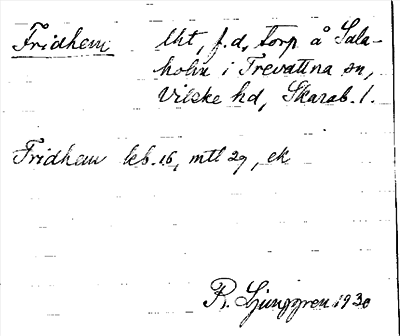 Fridhem lht, f.d. torp å Sala-
holm i Trevattna sn,
Vilske hd, Skarab. l.
Fridhem kb. 16, mtl 29, ek
R. Ljunggren 1930